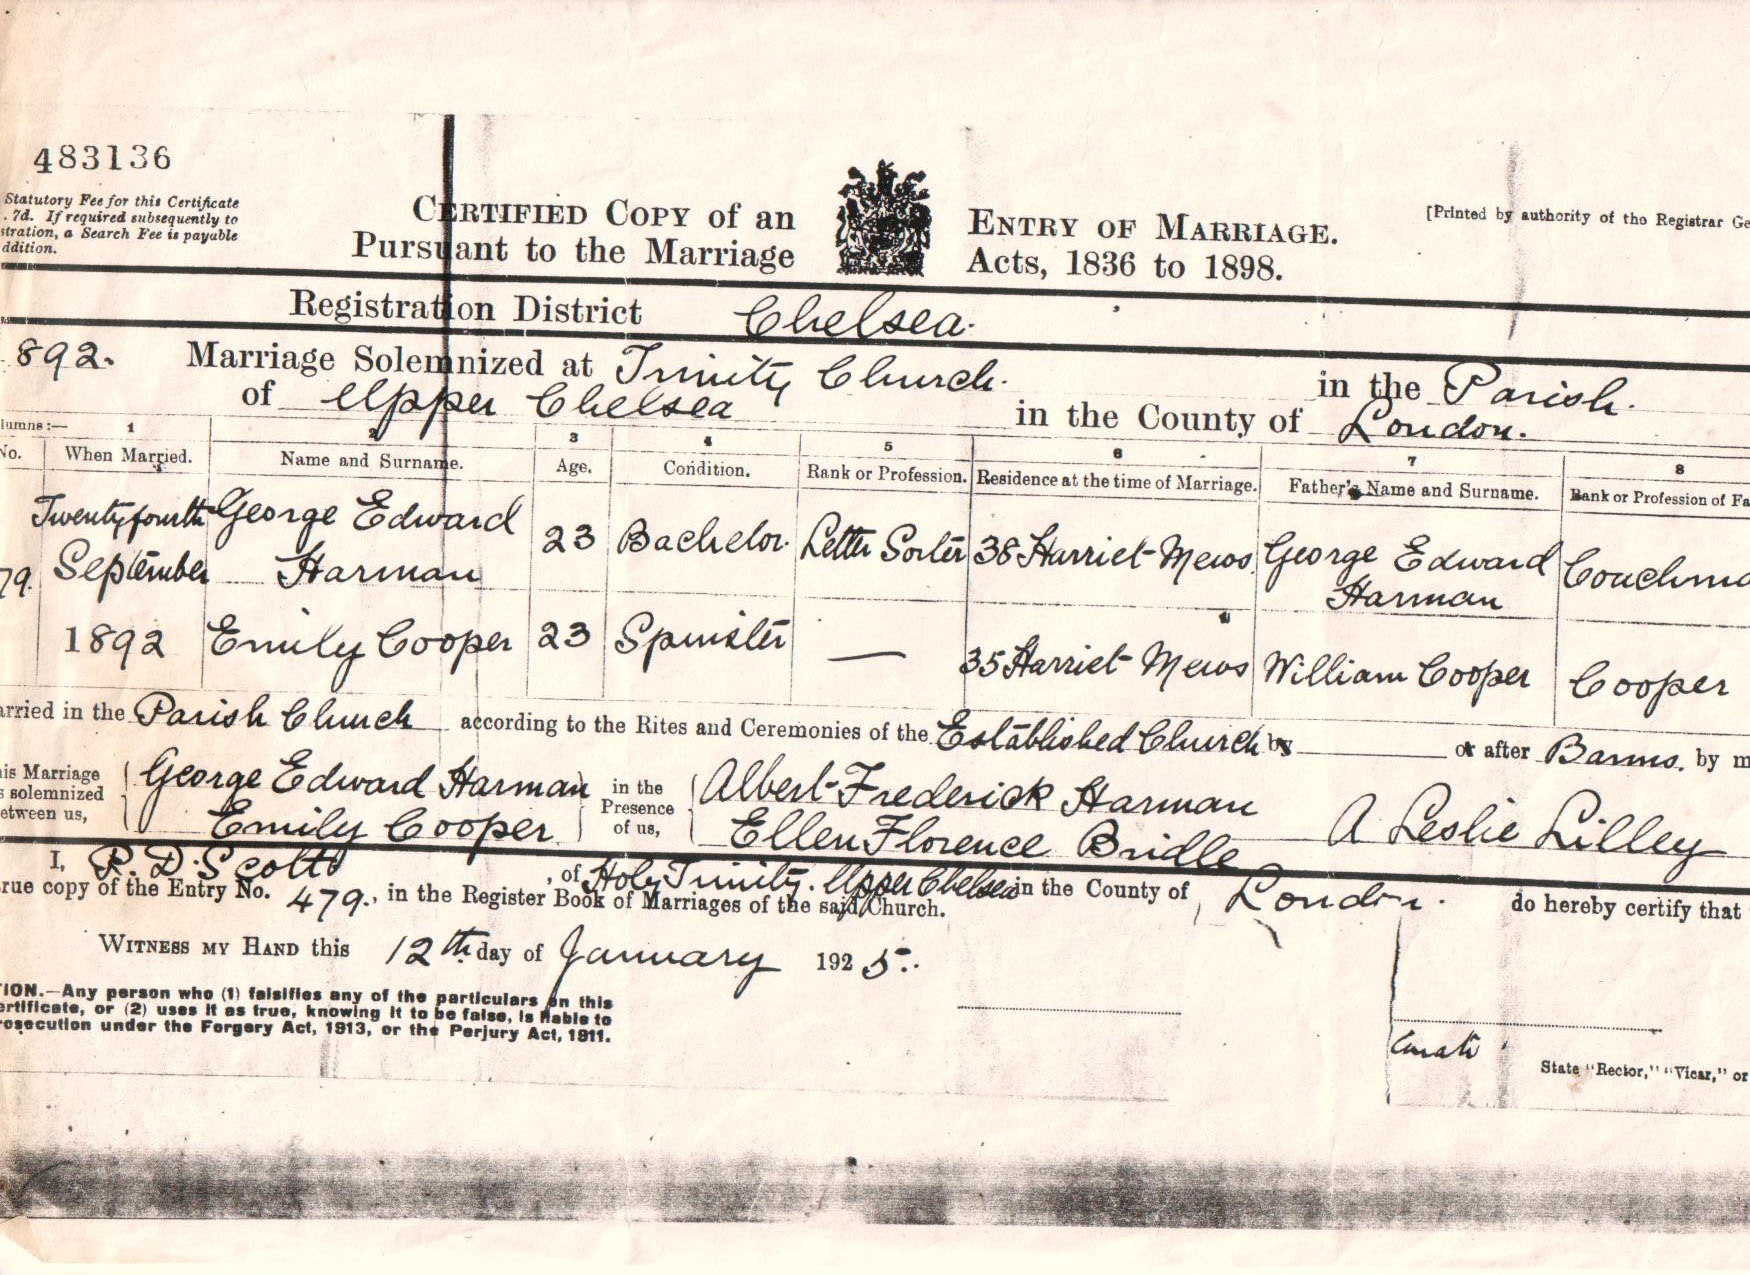 483136
Statutory Fee for this Certificate
. 7d. If required subsequently to
stration, a Search Fee is payable
ddition.
CERTIFIED COPY of an ENTRY OF MARRIAGE.
Pursuant to the Marriage Acts, 1836 to 1898.
[Printed by authority of the Registrar Ge
Registration District Chelsea.
892. Marriage Solemnized at Trinity Church. in the Parish.
of Upper Chelsea in the County of London.
lumns:— 1 2 3 4 5 6 7 8
No. When Married. Name and Surname. Age. Condition. Rank or Profession. Residence at the time of Marriage. Father's Name and Surname. Rank or Profession of Fa
Twenty fourth George Edward 23 Bachelor. Letter Sorter 38 Harriet Mews. George Edward Coachma
79. September Harman Harman
1892 Emily Cooper 23 Spinster — 35 Harriet Mews William Cooper Cooper
arried in the Parish Church according to the Rites and Ceremonies of the Established Church by or after Banns. by m
is Marriage George Edward Harman in the Albert Frederick Harman
s solemnized Presence A Leslie Lilley
etween us, Emily Cooper of us, Ellen Florence Bridle
I, R. D. Scott, of Holy Trinity. Upper Chelsea in the County of London. do hereby certify that
rue copy of the Entry No. 479., in the Register Book of Marriages of the said Church.
WITNESS MY HAND this 12th day of January 1925.
TION.—Any person who (1) falsifies any of the particulars on this
ertificate, or (2) uses it as true, knowing it to be false, is liable to
rosecution under the Forgery Act, 1913, or the Perjury Act, 1911.
Curate
State "Rector," "Vicar," or